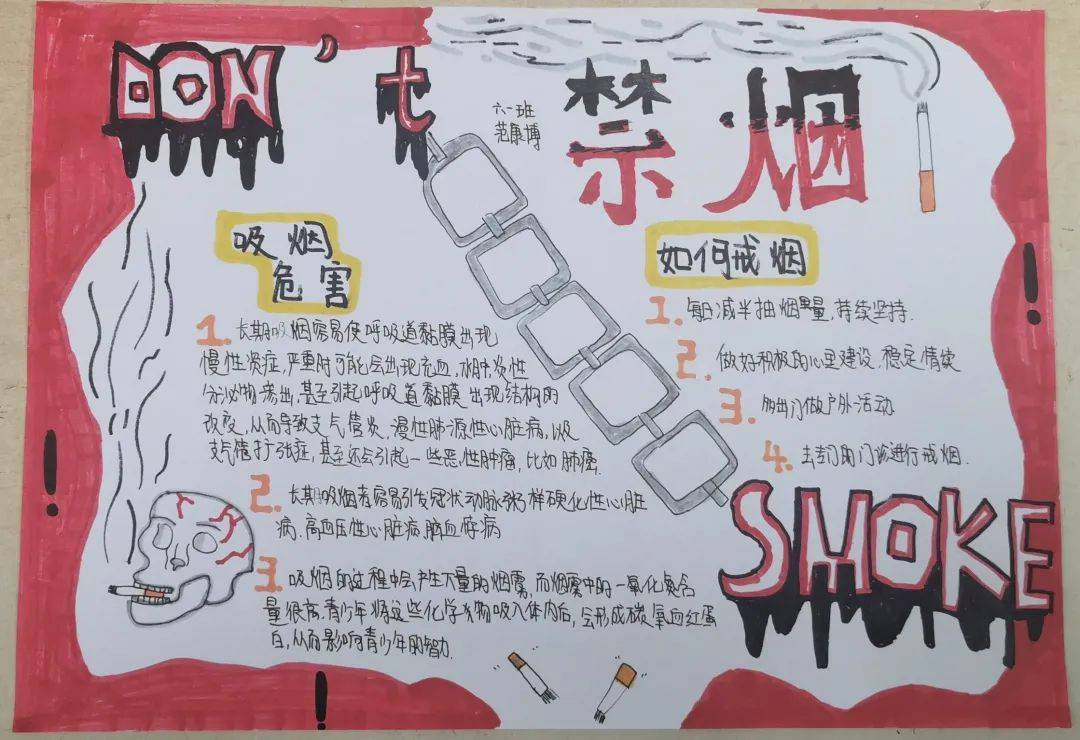 DON't
禁烟
六一班
范康博
吸烟
危害
1. 长期吸烟容易使呼吸道黏膜出现
慢性炎症,严重时可能会出现充血,水肿,炎性
分泌物渗出,甚至引起呼吸道黏膜出现结构的
改变,从而导致支气管炎,慢性肺源性心脏病,以及
支气管扩张症,甚至还会引起一些恶性肿瘤,比如肺癌.
2. 长期吸烟者容易引发冠状动脉粥样硬化性心脏
病、高血压性心脏病、脑血管病
3. 吸烟的过程中会产生大量的烟雾,而烟雾中的一氧化氮含
量很高.青少年将这些化学物吸入体内后,会形成碳氧血红蛋
白,从而影响青少年的智力.
如何戒烟
1. 每日减半抽烟量,持续坚持.
2. 做好积极的心里建设、稳定情绪
3. 多出门做户外活动
4. 去专门的门诊进行戒烟.
SMOKE